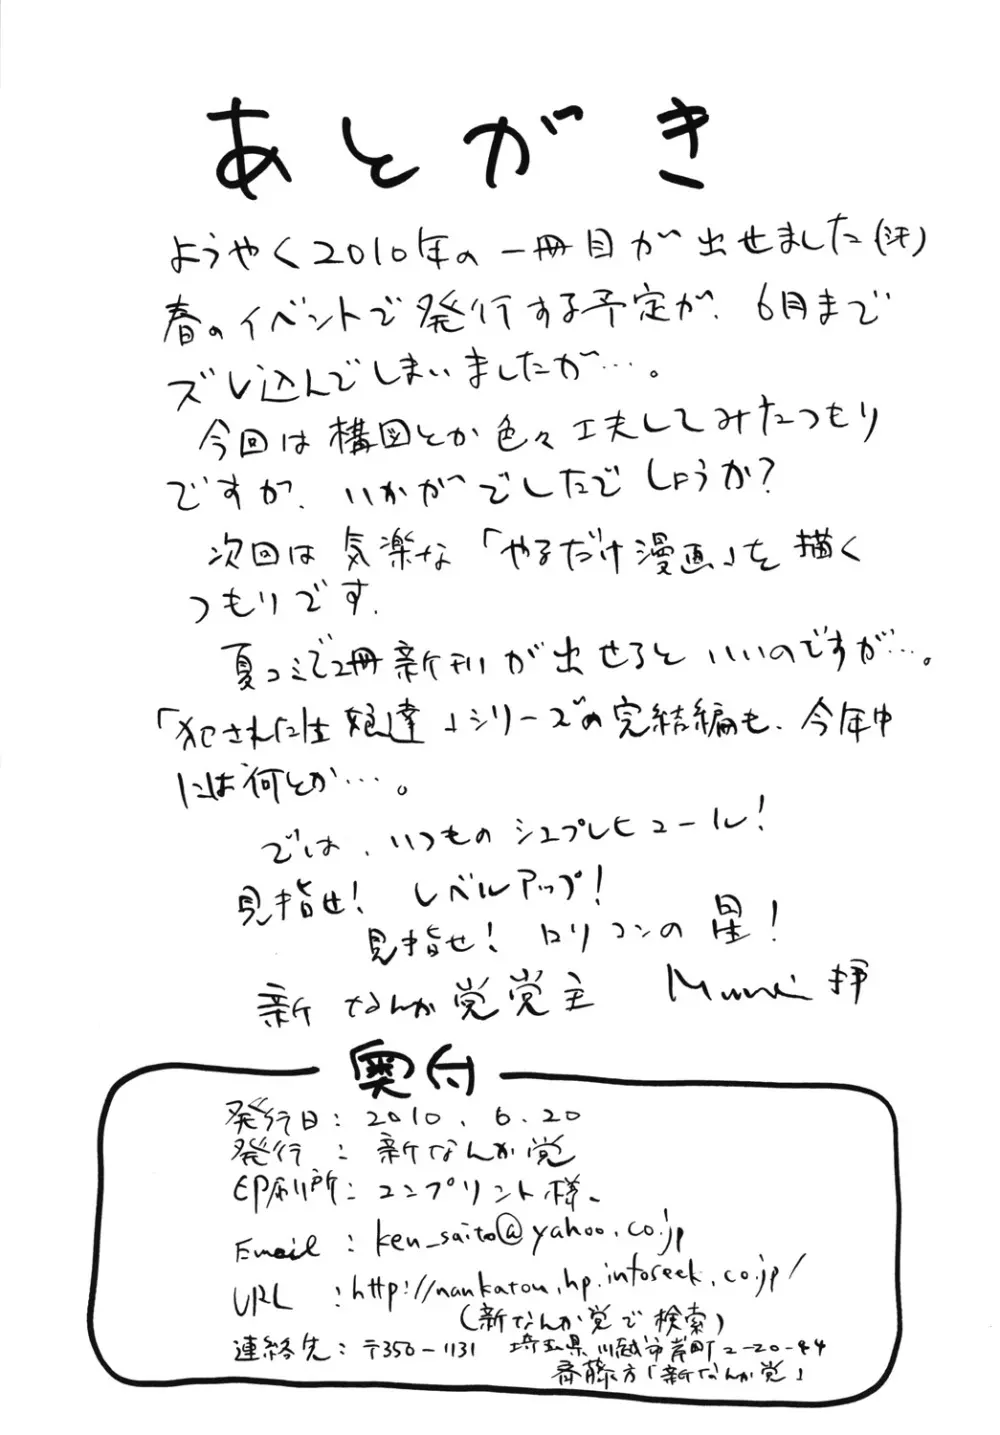 あとがき
ようやく2010年の一冊目が出せました(汗)
春のイベントで発行する予定が、6月まで
ズレ込んでしまいましたが…。
今回は構図とか色々工夫してみたつもり
ですが、いかがでしたでしょうか?
次回は気楽な「やるだけ漫画」を描く
つもりです。
夏コミで2冊新刊が出せるといいのですが…。
「犯された生娘達」シリーズの完結編も、今年中
には何とか…。
では、いつものシュプレヒコール!
見指せ! レベルアップ!
見指せ! ロリコンの星!
新なんか党党主 Munei 拝
奥付
発行日: 2010.6.20
発行 : 新なんか党
印刷所: コンプリント様
Email : ken_saito@yahoo.co.jp
URL : http://nankatou.hp.infoseek.co.jp/
(新なんか党で検索)
連絡先: 〒350-1131 埼玉県川越市岸町2-20-44
斎藤方「新なんか党」